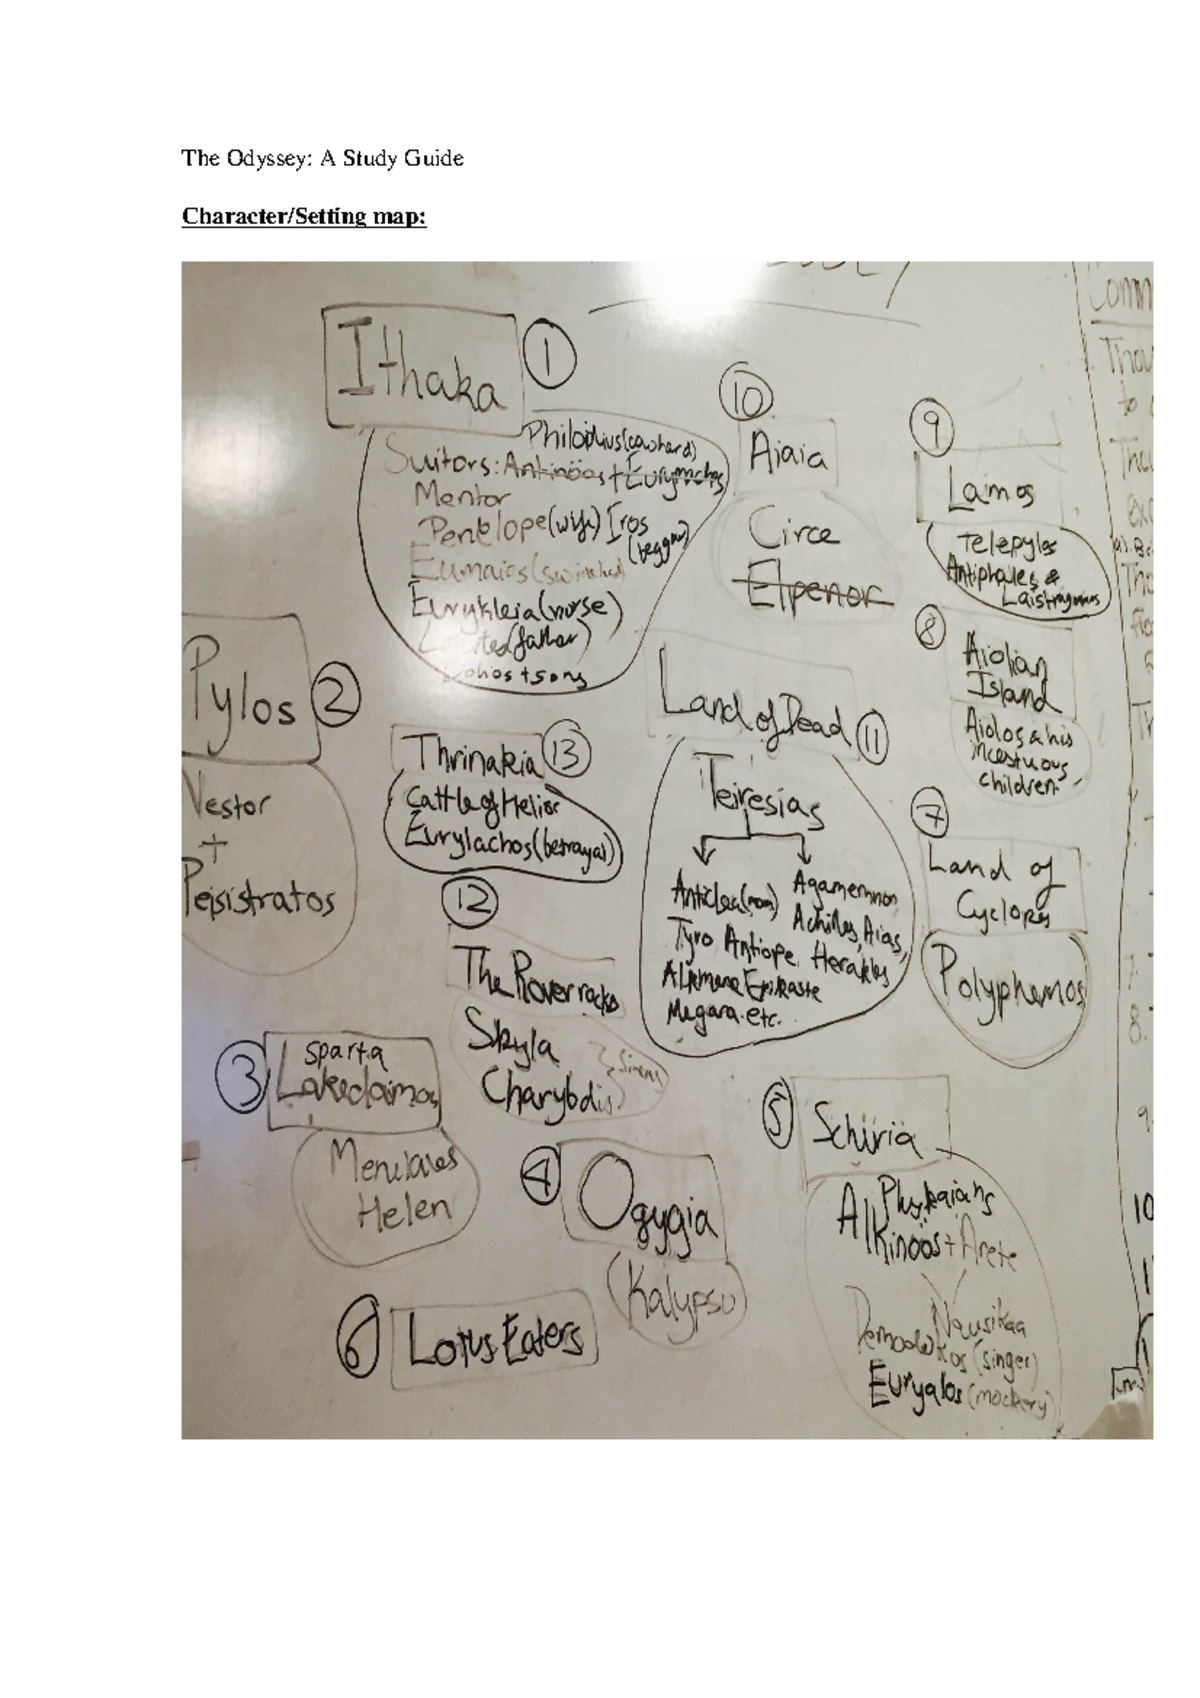 The Odyssey: A Study Guide
Character/Setting map:
Ithaka
1
Philoitius (cowherd)
Suitors: Antinöos + Eurymachos
Mentor
Penelope (wife) Iros
(beggar)
Eumaios (swineherd)
Eurykleia (nurse)
(father)
+ sons
Pylos
2
Nestor
+
Peisistratos
3
Sparta
Lakedaimos
Menelaus
Helen
4
Ogygia
Kalypso
5
Schiria
Alkinöos + Arete
Nausikaa
(singer)
Euryalos (mockery)
6
Lotus Eaters
7
Land of
Cyclopes
Polyphemos
8
Aiolian
Island
Aiolos & his
incestuous
children
9
Lamos
Telepylos
Antiphates &
10
Aiaia
Circe
Elpenor
Land of Dead
11
Teiresias
Anticlea (mom)
Tyro Antiope
Alkmene Epikaste
Megara etc.
Agamemnon
Achilles, Aias,
Herakles
12
The Rover rocks
Skyla
Charybdis
Sirens
Thrinakia
13
Cattle of Helios
Eurylachos (betrayal)
Comm
8.
9.
10